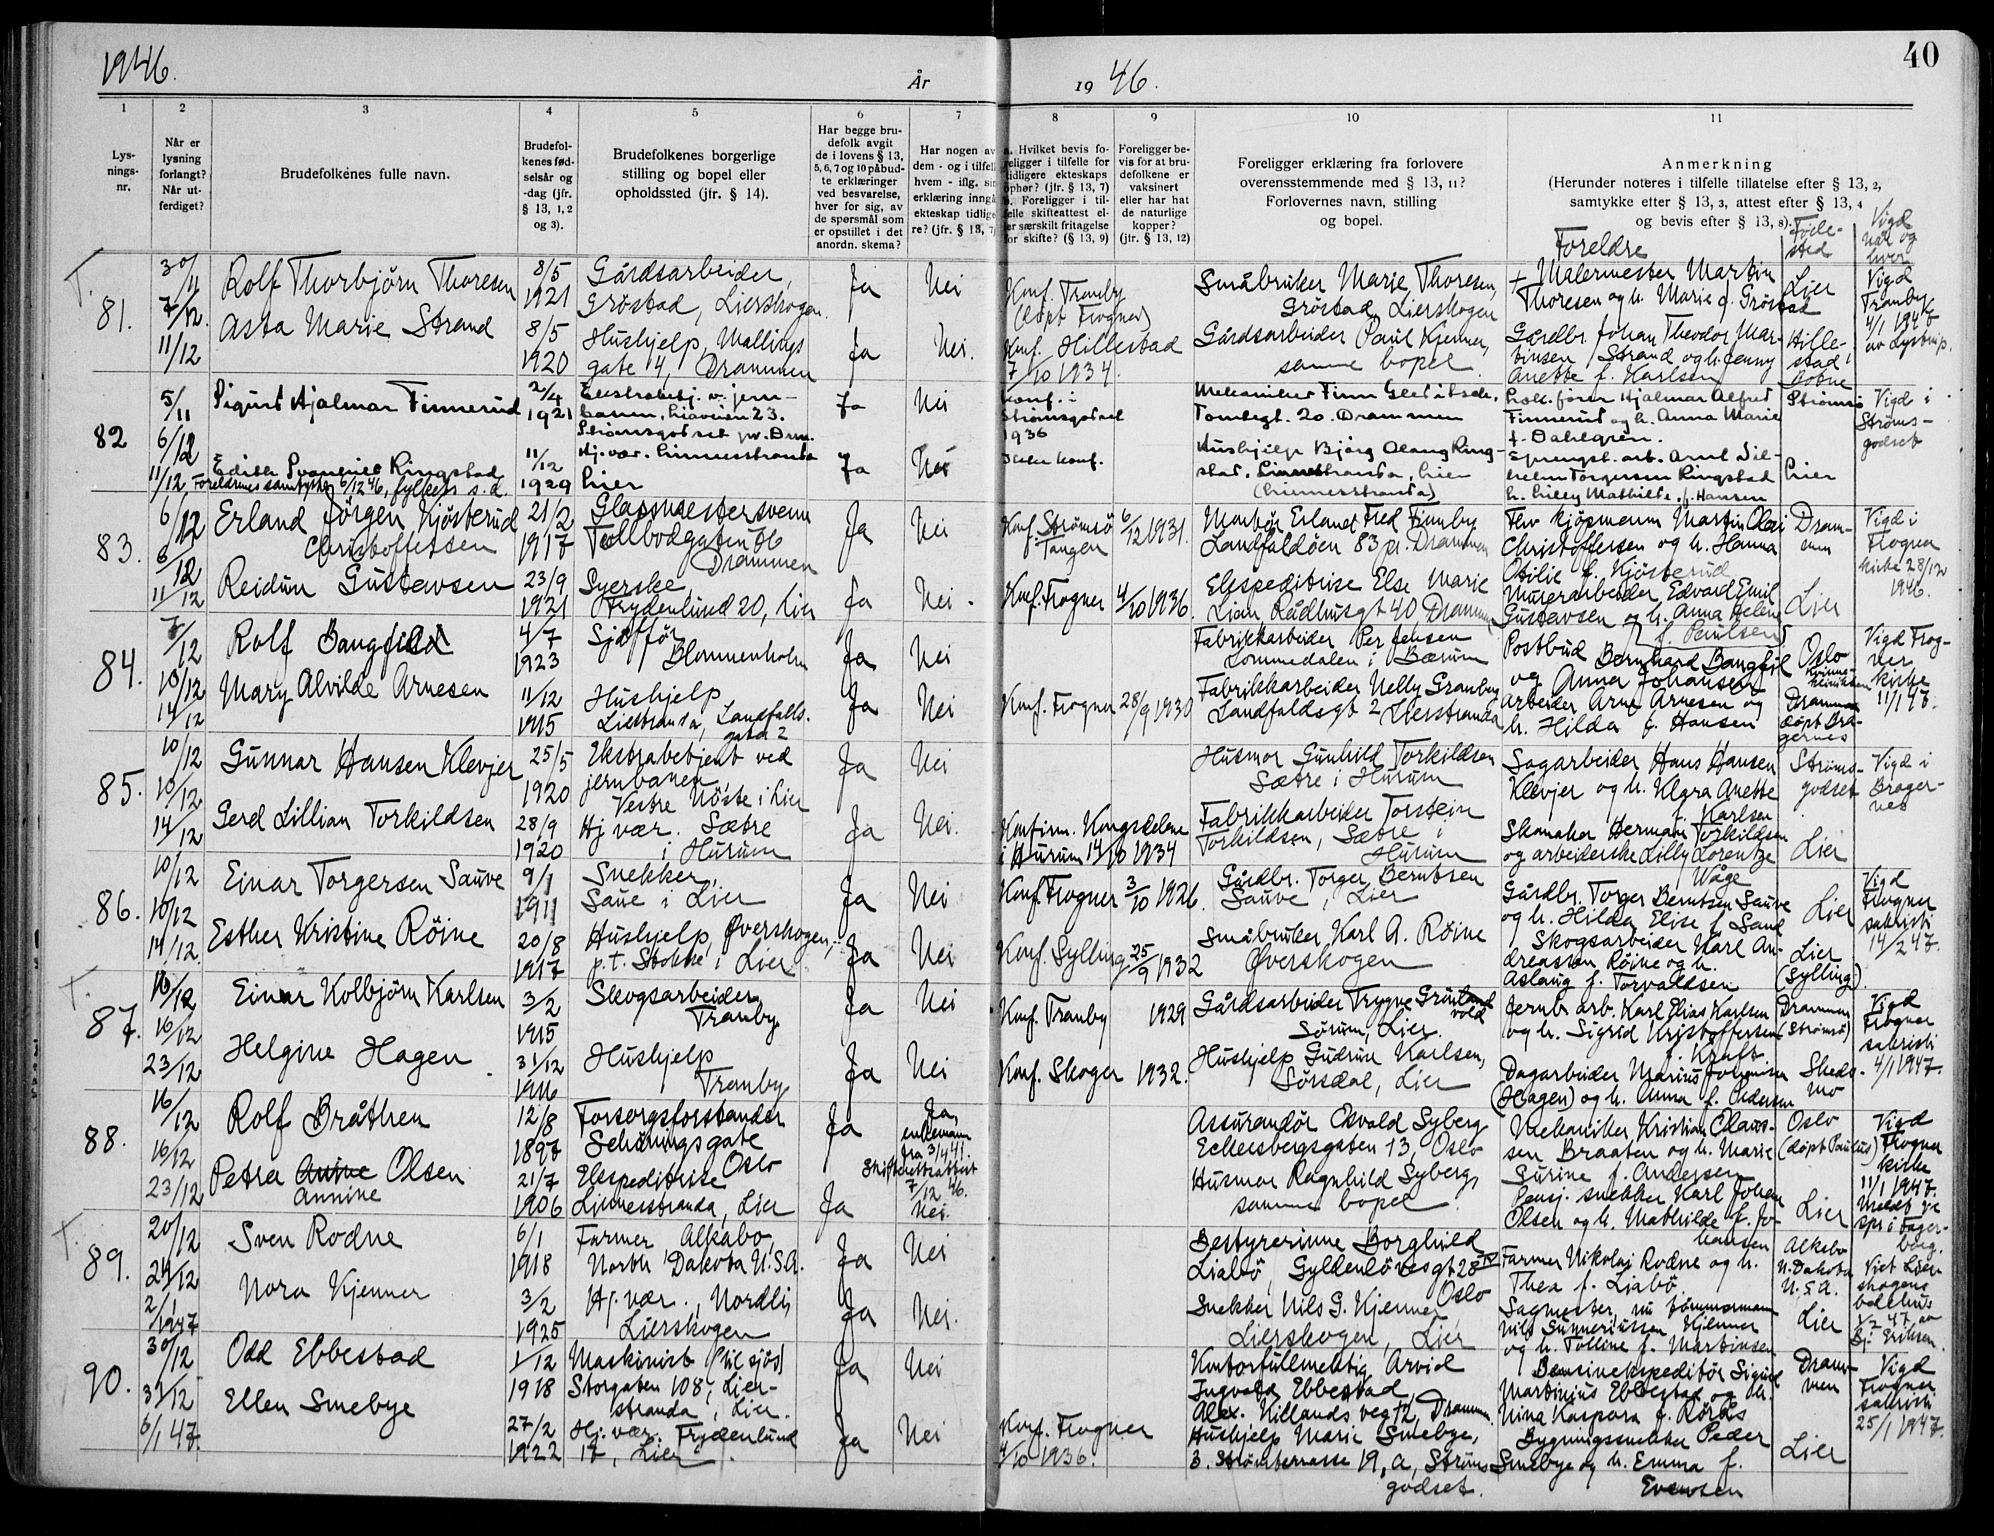 1946.
År
19 46.
40
1
2
3
4
5
6
7
8
9
10
11
Lys-
nings-
nr.
Når er
lysning
forlangt?
Når ut-
ferdiget?
Brudefolkenes fulle navn.
Brudefol-
kenes fød-
selsår og
-dag (jfr.
§ 13, 1, 2
og 3).
Brudefolkenes borgerlige
stilling og bopel eller
opholdssted (jfr. § 14).
Har begge bru-
defolk avgit
de i lovens § 13,
5, 6, 7 og 10 påbud-
te erklæringer
ved besvarelse,
hver for sig, av
de spørsmål som
er opstillet i det
anordn. skema?
Har nogen av
dem - og i tilfelle
hvem - iflg. sin
erklæring inngå
ekteskap tidlige
re? (jfr. § 13, 7)
a. Hvilket bevis fo-
religger i tilfelle for
tidligere ekteskaps
ophør? (jfr. § 13, 7)
b. Foreligger i til-
felle skifteattest el-
ler særskilt fritagelse
for skifte? (§ 13, 9)
Foreligger be-
vis for at bru-
defolkene er
vaksinert
eller har hat
de naturlige
kopper?
(jfr. § 13, 12)
Foreligger erklæring fra forlovere
overensstemmende med § 13, 11?
Forlovernes navn, stilling
og bopel.
Anmerkning
(Herunder noteres i tilfelle tillatelse efter § 13, 2,
samtykke efter § 13, 3, attest efter § 13, 4
og bevis efter § 13, 8).
Foreldre
Føde-
sted
Vigd
når og
hvor
T.
81.
30/11
7/12.
11/12
Rolf Thorbjørn Thoresen
Asta Marie Strand
8/5
1921
8/5
1920
Gårdsarbeider,
Gröstad, Lierskogen.
Hushjelp, Wallings
gate 4, Drammen
Ja
Ja
Nei
Nei.
Konf. Tranby
(döpt Frogner)
Konf. Hillestad
7/10 1934.
Småbruker Marie Thoresen,
Gröstad, Lierskogen
Gårdsarbeider Paul Kjenner,
samme bopel
+ Malermester Martin
Thoresen og h. Marie f. Gröstad
Gårdbr. Johan Theodor Mar-
tinsen Strand og h. Jenny
Anette f. Karlsen
Lier
Hille-
stad i
Botne
Vigd
Tranby k
4/1 1947
av Lystrup.
82
5/11
6/12
11/12
Sigurd Hjalmar Finnerud
Edith Svanhild Ringstad
Foreldrenes samtykke 6/12 46, fylkets s.d.
2/4
1921
11/12
1929
Ekstrabetj. v. jern-
banen, Liaveien 23.
Strømsgodset pr. Drm.
Hj. vær. Linnesstranda
Lier
Ja
Ja
Nei
Nei
Konf. i
Strømsgodset
1936
Ikke konf.
Mekaniker Finn Gleditsch,
Tomtegt. 20. Drammen
Hushjelp Bjørg Olaug Ring-
stad, Linnesstranda, Lier
(Linnesstranda)
Lok. fører Hjalmar Alfred
Finnerud og h. Anna Marie
f. Dahlgren.
Sprengst. arb. Arnt Vil-
helm Torgersen Ringstad
h. Lilly Mathilde, f. Hansen
Strømsø
Lier
Vigd i
Strøms-
godset
83.
6/12
6/12
11/12
Erland Jörgen Kjösterud
Christoffersen
Reidun Gustavsen
21/2
1917
23/9
1921
Glassmestersvenn
Tollbodgaten 66
Drammen
Syerske
Frydenlund 20, Lier
Ja
Ja
Nei
Nei -
Konf. Strømsö 6/12 1931.
Tangen
Konf. Frogner 4/10 1936.
Kontor Erland Fred Finnby
Landfaldöen 83 pr. Drammen
Ekspeditrise Else Marie
Lian Rådhusgt 40, Drammen
Fhv. kjöpmann Martin Olai
Christoffersen og h. Hanna
Otilie f. Kjösterud
Murerarbeider Edvard Emil
Gustavsen og h. Anna Helene
f. Paulsen
Dram-
men
Lier
Vigd i
Frogner
kirke 28/12
1946.
84.
7/12
10/12
14/12
Rolf Bangfild
Mary Alvilde Arnesen
4/7
1923
11/12
1915
Sjåfför
Blommenholm
Hushjelp
Lierstranda, Landfalls-
gata 2
Ja
Ja
Nei
Nei
Konf. Frogner 28/9 1930
Fabrikkarbeider Per Jensen
Lommedalen i Bærum
Fabrikkarbeider Nelly Granberg
Landfaldsgt 2 Lierstranda
Postbud Bernhard Bangfil
og Anna Johansen
Arbeider Arne Arnesen og
h. Hilda f. Hansen
Oslo
Kvinne-
klinikken
Drammen
döpt Bra-
gernes
Vigd Frog-
ner
kirke
11/1 47.
85.
10/12
10/12
14/12
Gunnar Hansen Klevjer
Gerd Lillian Torkildsen
25/5
1920
28/9
1920
Ekstrabetjent ved
jernbanen,
Vestre Nöste i Lier
Hj vær. Sætre
i Hurum
Ja
Ja
Nei
Nei.
Konfirm. Kongsdelene
i Hurum 14/10 1934
Husmor Gunhild Torkildsen
Sætre i Hurum
Fabrikkarbeider Torstein
Torkildsen, Sætre i
Hurum
Sagarbeider Hans Hansen
Klevjer og h. Klara Anette
f. Karlsen
Skomaker Herman Torkildsen
og arbeiderske Lilly Lorentze
Wåge
Strøms-
godset
Lier
Vigd i
Brager-
nes
86.
10/12
10/12
14/12.
Einar Torgersen Sauve
Esther Kristine Röine
9/1
1911
20/8
1917
Snekker,
Saue i Lier
Hushjelp, Øverskogen,
p.t. Stokke i Lier
Ja
Ja
Nei
Nei
Konf. Frogner 3/10 1926.
Konf. Sylling 25/9 1932
Gårdbr. Torger Berntsen
Sauve, Lier
Småbruker Karl A. Röine
Øverskogen
Gårdbr. Torger Berntsen Sauve
og h. Hilda Elise f. Sand
Skogsarbeider Karl An-
dreassen Röine og h.
Aslaug f. Torvaldsen
Lier
Lier
(Sylling).
Vigd
Frogner
sakristi
14/2 47.
T.
87.
16/12
16/12
23/12
Einar Kolbjörn Karlsen
Helgine Hagen
3/2
1915
31/12
1916
Skogsarbeider
Tranby
Hushjelp
Tranby
Ja
Ja
Nei
Nei
Konf. Tranby 1929
Konf. Skoger 1932.
Gårdsarbeider Trygve Grönvold
Sörum, Lier
Hushjelp Gudrun Karlsen,
Sörsdal, Lier
Jernb arb. Karl Elias Karlsen
og h. Sigrid Kristoffersen
f. Kraft
Dagarbeider Marius Johansen
(Hagen) og h. Anna f. Pedersen
Drammen
(Strømsö)
Skeds-
mo
Vigd
Frogner
sakristi
4/1 1947.
88.
16/12
16/12
23/12
Rolf Bråthen
Petra Anine Olsen
Annine
12/8
1897
21/7
1906
Forsorgsforstander
Schönings gate
Oslo
Ekspeditrise
Linnesstranda, Lier
Ja
Ja
Ja,
enkemann
fra 3/4 41.
Skifterettsattest
7/12 46.
Nei.
Assurandør Osvald Syberg
Eckersbergsgaten 13, Oslo
Husmor Ragnhild Syberg,
samme bopel.
Mekaniker Kristian Claus-
sen Braaten og h. Marie
Surine f. Andersen
Pensj. snekker Karl Johan
Olsen og h. Mathilde f. Jo-
hansen
Oslo
(döpt Paulus)
Lier
Vigd
Frogner
kirke
11/1 1947.
Meldt
spr i Fager-
borg.
T.
89.
20/12
24/12
2/1
1947
Sven Rodne
Nora Kjenner
6/1
1918
3/2
1925
Farmer Alkabo,
North Dakota U.S.A.
Hj. vær., Nordli,
Lierskogen
Ja
Ja
Nei
Nei.
Bestyrerinne Borghild
Liabö, Gyldenlövesgt 28 IV
Oslo
Snekker Nils G. Kjenner
Lierskogen, Lier
Farmer Nikolai Rodne og h.
Thea f. Liabö.
Sagmester, nu tömmermann
Nils Gunneriussen Kjenner
og h. Tolline f. Martinsen
Alkabo
N. Dakota
U.S.A.
Lier
Viet Lier-
skogens
bedehus
1/2 47, av
Bj. Eriksen.
90.
30/12
31/12
6/1 47.
Odd Ebbestad
Ellen Smebye
1/12
1918
27/2
1922
Maskinist (til sjös)
Storgaten 108, Lier-
stranda, Lier.
Hj. vær. Frydenlund
17, Lier.
Ja
Ja
Nei
Nei
Konf. Frogner
4/10 1936.
Kontorfullmektig Arvid
Ingvald Ebbestad,
Alex. Killands veg 12, Drammen.
Hushjelp Marie Smebye,
3. Strømterrasse 19, a, Strøms-
godset.
Bensinekspeditör Sigurd
Martinius Ebbestad og h.
Nina Kaspara f. Rörås
Bygningssnekker Peder
Smebye og h. Emma f.
Evensen
Dram-
men
Lier
Vigd
Frogner
sakristi
25/1 1947.